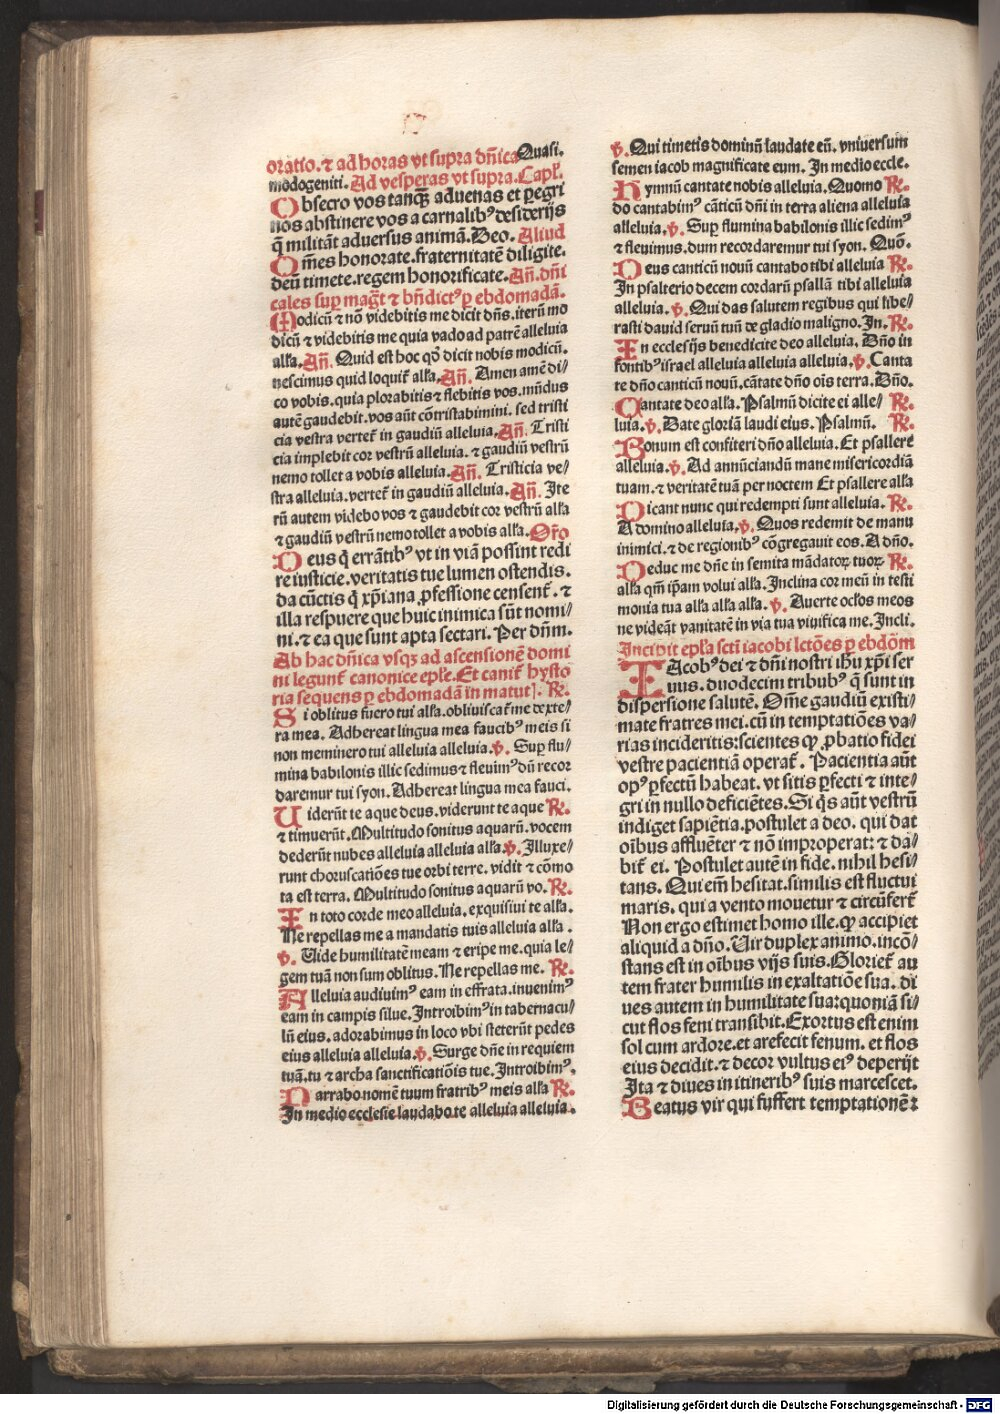 oratio. ⁊ ad horas vt supra dñica Quasi.
modogeniti. Ad vesperas vt supra. Capl̃.
Obsecro vos tanq̃ʒ aduenas et ꝑegri
nos abstinere vos a carnalibꝰ desiderijs
q̃ militãt aduersus animã. Deo. Aliud
Om̃es honorate. fraternitatẽ diligite.
deũ timete. regem honorificate. Añ. dñi
cales suꝑ mag̃t ⁊ bñdictꝰ ꝑ ebdomadã.
Modicũ ⁊ nõ videbitis me dicit dñs. iterũ mo
dicũ ⁊ videbitis me quia vado ad patrẽ alleluia
alĺa. Añ. Quid est hoc qđ dicit nobis modicũ.
nescimus quid loquit̃ alĺa. Añ. Amen amẽ di/
co vobis. quia plorabitis ⁊ flebitis vos. mũdus
autẽ gaudebit. vos aũt cõtristabimini. sed tristi
cia vestra vertet̃ in gaudiũ alleluia. Añ. Tristi
cia implebit cor vestrũ alleluia. ⁊ gaudiũ vestrũ
nemo tollet a vobis alleluia. Añ. Tristicia ve/
stra alleluia. vertet̃ in gaudiũ alleluia. Añ. Ite
rũ autem videbo vos ⁊ gaudebit cor vestrũ alĺa
⁊ gaudiũ vestrũ nemo tollet a vobis alĺa. Or̃o
Deus q̃ errãtibꝰ vt in viã possint redi
re iusticie. veritatis tue lumen ostendis.
da cũctis q̃ xp̃iana ꝓfessione censent̃. ⁊
illa respuere que huic inimica sũt nomi/
ni. ⁊ ea que sunt apta sectari. Per dñm.
Ab hac dñica vsqʒ ad ascensionẽ domi
ni legunt̃ canonice epl̃e. Et canit̃ hysto
ria sequens ꝑ ebdomadã in matut̃. ℟.
Si oblitus fuero tui alĺa. obliuiscat̃ me dexte/
ra mea. Adhereat lingua mea faucibꝰ meis si
non meminero tui alleluia alleluia. ℣. Suꝑ flu/
mina babilonis illic sedimus ⁊ fleuimꝰ dũ recor
daremur tui syon. Adhereat lingua mea fauci.
Uiderũt te aque deus. viderunt te aque ℟.
⁊ timuerũt. Multitudo sonitus aquarũ. vocem
dederũt nubes alleluia alleluia alĺa. ℣. Illuxe/
runt choruscatiões tue orbi terre. vidit ⁊ cõmo
ta est terra. Multitudo sonitus aquarũ vo. ℟.
In toto corde meo alleluia. exquisiui te alĺa.
Ne repellas me a mandatis tuis alleluia alĺa.
℣. Uide humilitatẽ meam ⁊ eripe me. quia le/
gem tuã non sum oblitus. Ne repellas me. ℟.
Alleluia audiuimꝰ eam in effrata. inuenimꝰ
eam in campis silue. Introibimꝰ in tabernacu/
lũ eius. adorabimus in loco vbi steterũt pedes
eius alleluia alleluia. ℣. Surge dñe in requiem
tuã. tu ⁊ archa sanctificatiõis tue. Introibimꝰ.
Narrabo nomẽ tuum fratribꝰ meis alĺa ℟.
In medio ecclesie laudabo te alleluia alleluia.
℣. Qui timetis dominũ laudate eũ. vniuersum
semen iacob magnificate eum. In medio eccle.
Hymnũ cantate nobis alleluia. Quomo ℟.
do cantabimꝰ cãticũ dñi in terra aliena alleluia
alleluia. ℣. Suꝑ flumina babilonis illic sedimꝰ
⁊ fleuimus. dum recordaremur tui syon. Quõ.
Deus canticũ nouũ cantabo tibi alleluia ℟.
In psalterio decem cordarũ psallã tibi alleluia
alleluia. ℣. Qui das salutem regibus qui libe/
rasti dauid seruũ tuũ de gladio maligno. In. ℟.
In ecclesijs benedicite deo alleluia. Dño in
fontibꝰ israel alleluia alleluia alleluia. ℣. Canta
te dño canticũ nouũ. cãtate dño oĩs terra. Dño.
Cantate deo alĺa. Psalmũ dicite ei alle/ ℟.
luia. ℣. Date gloriã laudi eius. Psalmũ. ℟.
Bonum est confiteri dño alleluia. Et psallere
alleluia. ℣. Ad annũciandũ mane misericordiã
tuam. ⁊ veritatẽ tuã per noctem Et psallere alĺa
Dicant nunc qui redempti sunt alleluia. ℟.
A domino alleluia. ℣. Quos redemit de manu
inimici. ⁊ de regionibꝰ cõgregauit eos. A dño.
Deduc me dñe in semita mãdatoꝝ tuoꝝ ℟.
alĺa qm̃ ip̃am volui alĺa. Inclina cor meũ in testi
monia tua alĺa alĺa alĺa. ℣. Auerte ocĺos meos
ne videãt vanitatẽ in via tua viuifica me. Incli.
Incipit epl̃a scti iacobi lctões ꝑ ebdõm
IAcobꝰ dei ⁊ dñi nostri ih̃u xp̃i ser
uus. duodecim tribubꝰ q̃ sunt in
dispersione salutẽ. Om̃e gaudiũ existi/
mate fratres mei. cũ in temptatiões va/
rias incideritis: scientes ꝙ ꝓbatio fidei
vestre pacientiã operat̃. Pacientia aũt
opꝰ ꝑfectũ habeat. vt sitis ꝑfecti ⁊ inte/
gri in nullo deficiẽtes. Si q̃s aũt vestrũ
indiget sapiẽtia. postulet a deo. qui dat
oĩbus affluẽter ⁊ nõ improperat: ⁊ da/
bit̃ ei. Postulet autẽ in fide. nihil hesi/
tans. Qui em̃ hesitat. similis est fluctui
maris. qui a vento mouetur ⁊ circũfert̃
Non ergo estimet homo ille. ꝙ accipiet
aliquid a dño. Uir duplex animo. incõ/
stans est in oĩbus vijs suis. Gloriet̃ au
tem frater humilis in exaltatiõe sua. di
ues autem in humilitate sua: quoniã si/
cut flos feni transibit. Exortus est enim
sol cum ardore. et arefecit fenum. et flos
eius decidit. ⁊ decor vultus eiꝰ deperijt
Ita ⁊ diues in itineribꝰ suis marcescet.
Beatus vir qui suffert temptationẽ:
Digitalisierung gefördert durch die Deutsche Forschungsgemeinschaft - DFG